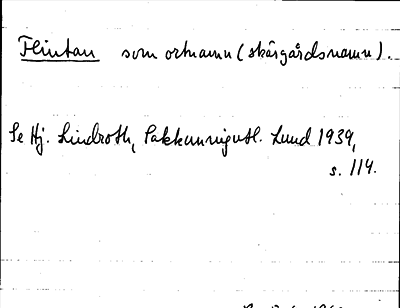 Flintan som ortnamn (skärgårdsnamn).
Se Hj. Lindroth, Sakkunnigutl. Lund 1939,
s. 114.